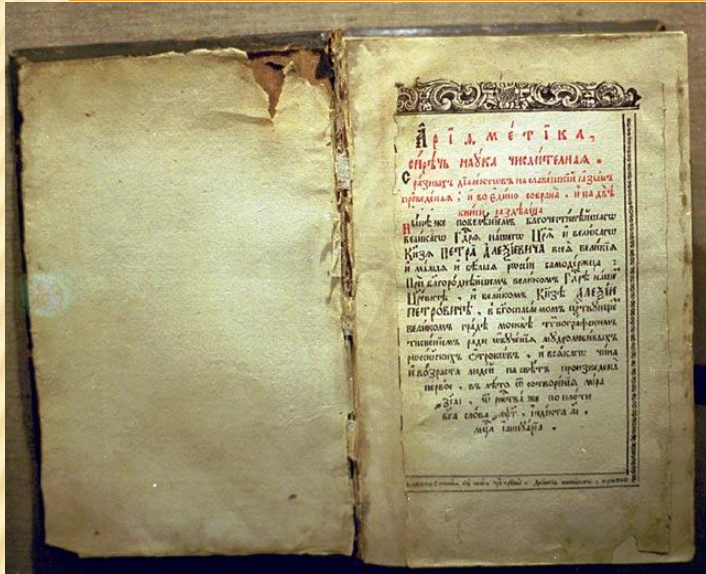 Арїѳме́тїка,
си́рѣчь наꙋ́ка числи́телнаѧ.
С ра́зныхъ дїале́ктѡвъ на славе́нскїй ꙗзы́къ
преведе́наѧ, и во еди́но собрана̀, и на двѣ̀
книги раздѣлена̀
Ны́нѣ же повелѣ́нїемъ бл҃гочести́вѣйшагѡ
вели́кагѡ Гд҇рѧ на́шегѡ Цр҃ѧ̀ и вели́кагѡ
Кн҃зѧ ПЕТРА̀ АЛЕѮЇ́ЕВИЧА всеѧ̀ вели́кїѧ
и ма́лыѧ и бѣ́лыѧ рѡссі́и самоде́ржца:
При бл҃городнѣ́йшемъ вели́комъ Гд҇рѣ на́шемъ
Цр҃е́вичѣ, и вели́комъ Кн҃зѣ АЛЕѮІ́И
ПЕТРО́ВИЧѢ, в бг҃оспаса́емомъ ца́рствꙋющемъ
вели́комъ гра́дѣ москвѣ̀ тѷпогра́фскимъ
тисне́нїемъ ра́ди ѡбꙋче́нїѧ мꙋдролюби́выхъ
рѡссі́йскихъ ѻтрокѡвъ, и всѧ́кагѡ чи́на
и во́зраста люде́й на свѣ́тъ произведена̀
пе́рвое, въ лѣ́то ѿ сотворе́нїѧ мі́ра
҂зсаі, ѿ рж҇тва̀ же по пло́ти
бг҃а сло́ва ҂аѱг, індікта аі,
мц҇а іаннꙋа́рїа.